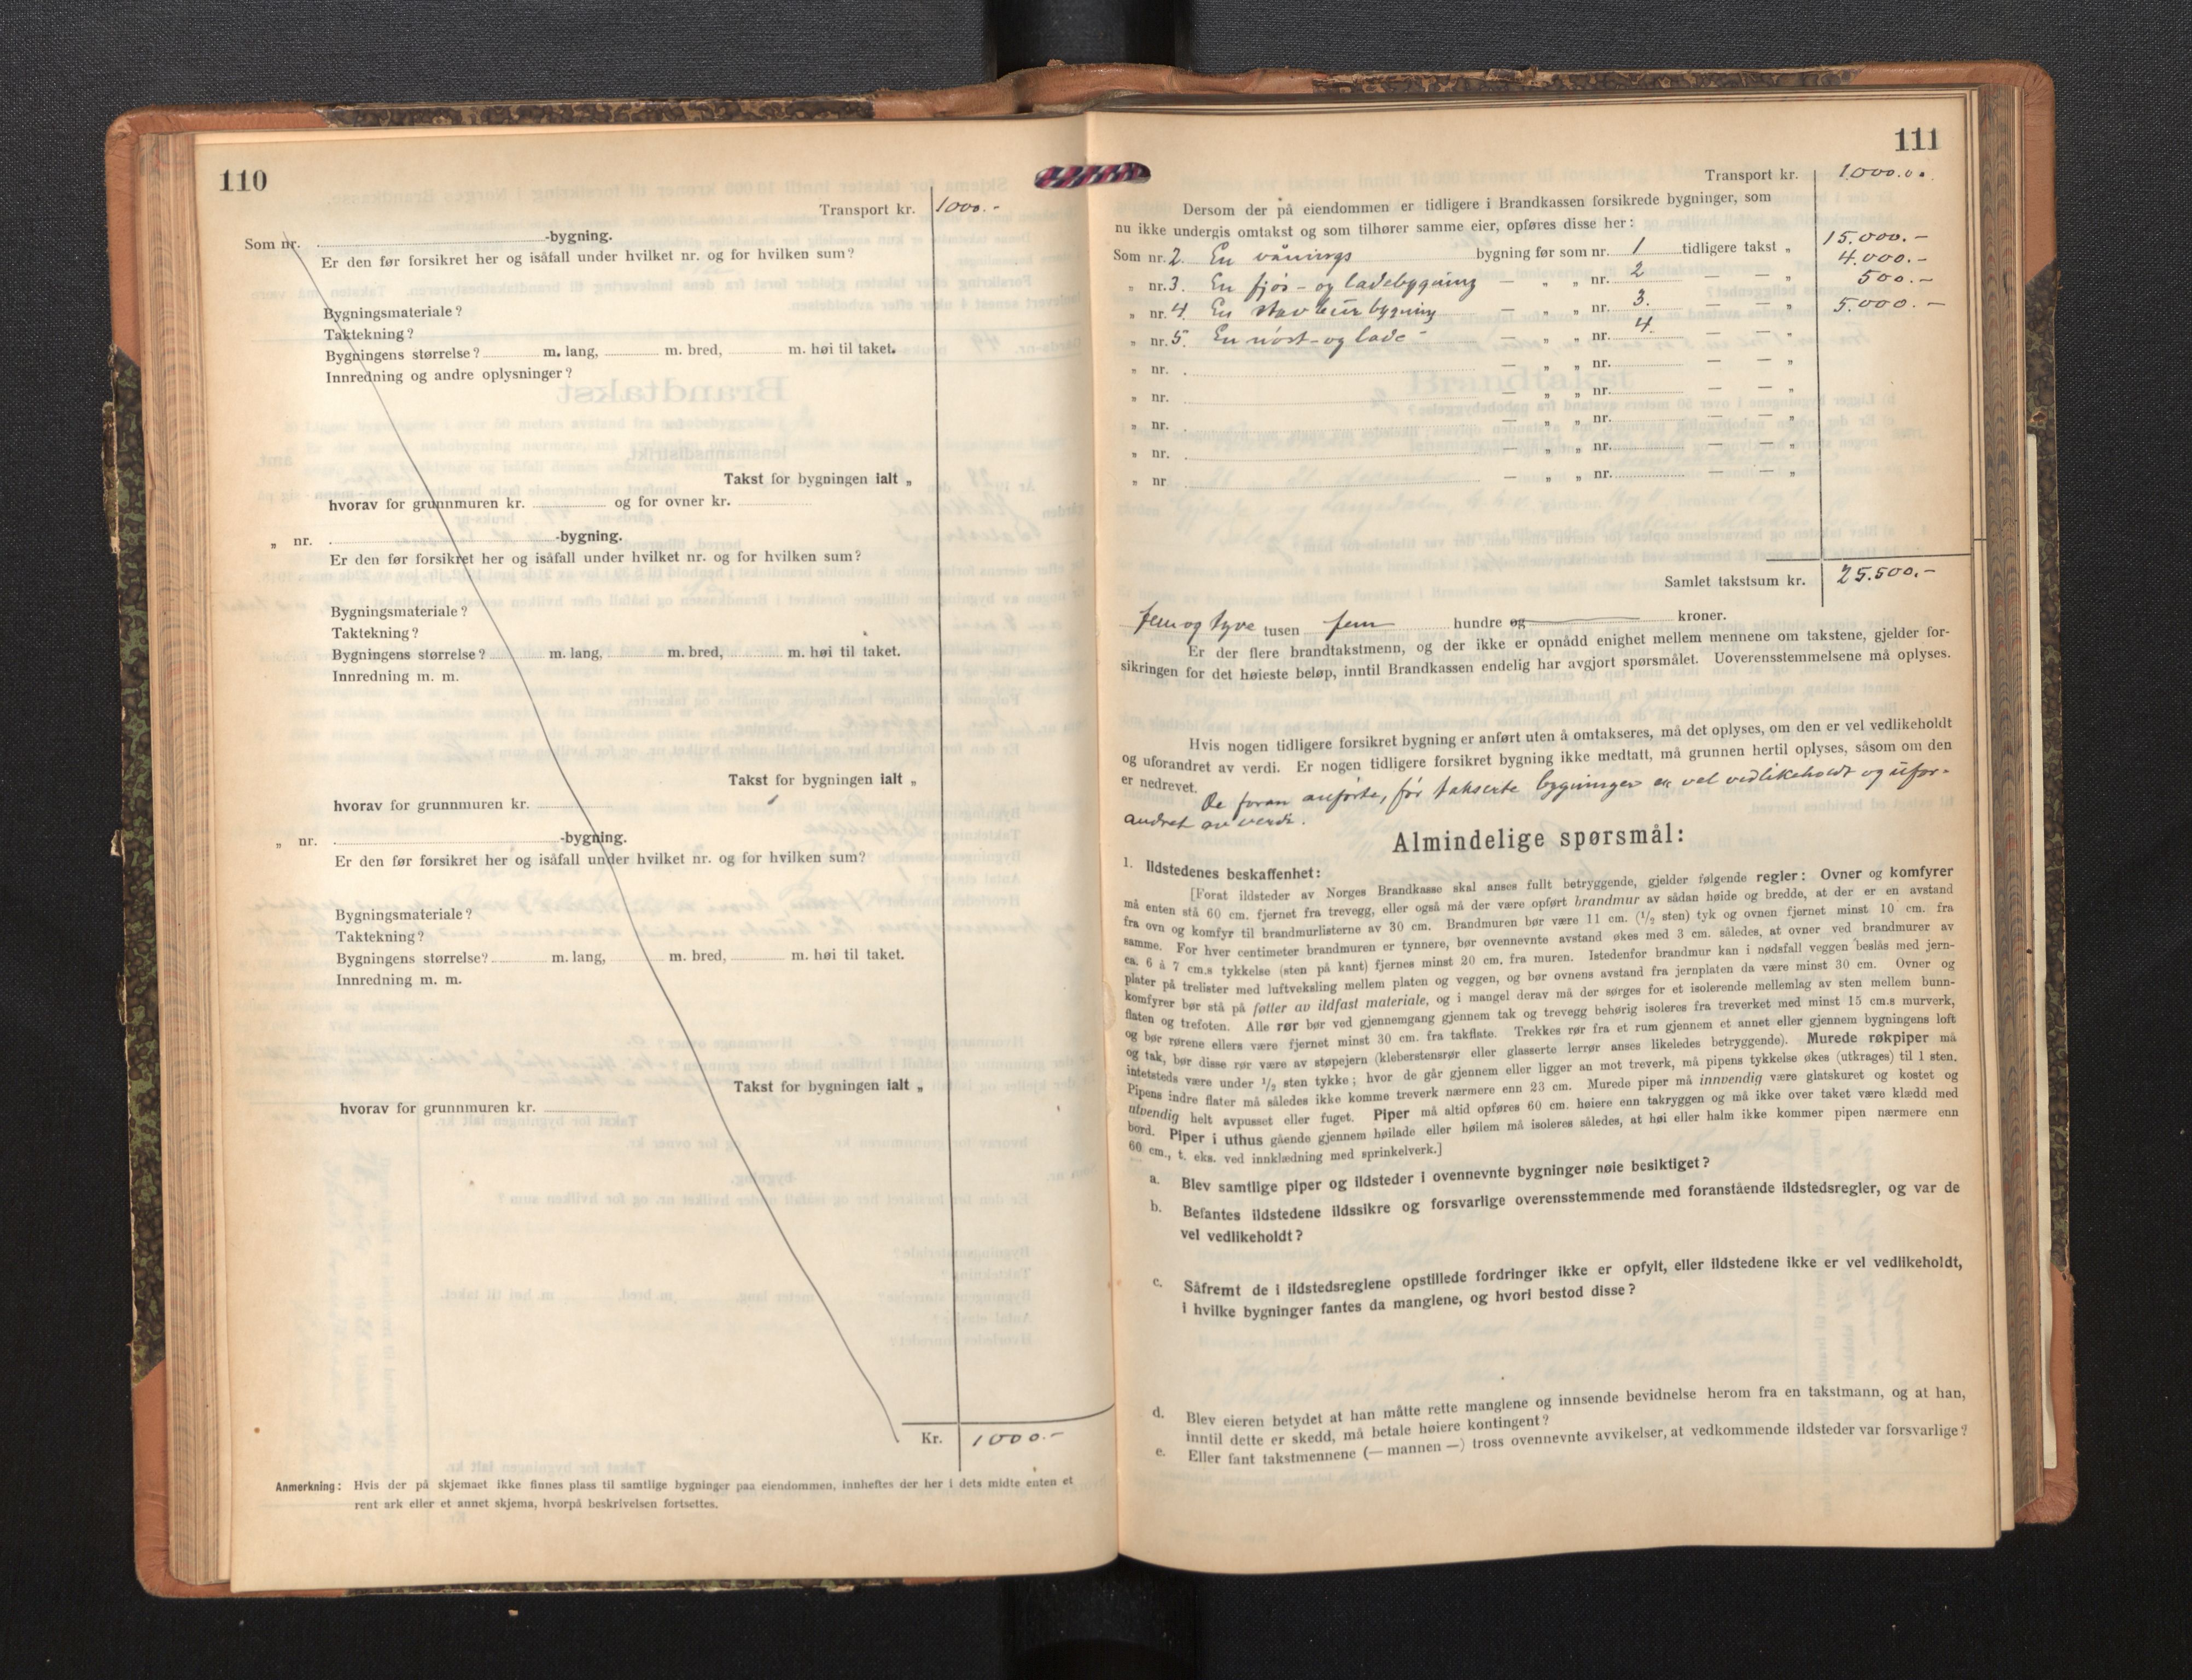 110
Transport kr. 1000.-
Som nr. -bygning.
Er den før forsikret her og isåfall under hvilket nr. og for hvilken sum?
Bygningsmateriale?
Taktekning?
Bygningens størrelse? m. lang, m. bred, m. høi til taket.
Innredning og andre oplysninger?
Takst for bygningen ialt „
hvorav for grunnmuren kr. og for ovner kr.
„ nr. -bygning.
Er den før forsikret her og isåfall under hvilket nr. og for hvilken sum?
Bygningsmateriale?
Taktekning?
Bygningens størrelse? m. lang, m. bred, m. høi til taket.
Innredning m. m.
Takst for bygningen ialt „
hvorav for grunnmuren kr.
„ nr. -bygning.
Er den før forsikret her og isåfall under hvilket nr. og for hvilken sum?
Bygningsmateriale?
Taktekning?
Bygningens størrelse? m. lang, m. bred, m. høi til taket.
Innredning m. m.
Takst for bygningen ialt „
hvorav for grunnmuren kr.
Kr. 1000.-
Anmerkning: Hvis der på skjemaet ikke finnes plass til samtlige bygninger paa eiendommen, innheftes der her i dets midte enten et
rent ark eller et annet skjema, hvorpå beskrivelsen fortsettes.
111
Transport kr. 1000.00.
Dersom der på eiendommen er tidligere i Brandkassen forsikrede bygninger, som
nu ikke undergis omtakst og som tilhører samme eier, opføres disse her:
Som nr. 2. En vånings bygning før som nr. 1 tidligere takst „ 15.000.-
„ nr. 3. En fjøs- og ladebygning — „ „ nr. 2 — — „ 4.000.-
„ nr. 4. En stavbur bygning — „ „ nr. 3. — — „ 500.-
„ nr. 5. En nøst- og lade — „ „ nr. 4. — — „ 5.000.-
„ nr. — „ „ nr. — — „
„ nr. — „ „ nr. — — „
„ nr. — „ „ nr. — — „
„ nr. — „ „ nr. — — „
„ nr — „ „ nr. — — „
Samlet takstsum kr. 25.500.-
fem og tyve tusen fem hundre og kroner.
Er der flere brandtakstmenn, og der ikke er opnådd enighet mellem mennene om takstene, gjelder for-
sikringen for det høieste beløp, inntil Brandkassen endelig har avgjort spørsmålet. Uoverensstemmelsene må oplyses.
Hvis nogen tidligere forsikret bygning er anført uten å omtakseres, må det oplyses, om den er vel vedlikeholdt
og uforandret av verdi. Er nogen tidligere forsikret bygning ikke medtatt, må grunnen hertil oplyses, såsom om den
er nedrevet. De foran anførte, før takserte bygninger er vel vedlikeholdt og ufor-
andret av verdi.
Almindelige spørsmål:
1. Ildstedenes beskaffenhet:
[Forat ildsteder av Norges Brandkasse skal anses fullt betryggende, gjelder følgende regler: Ovner og komfyrer
må enten stå 60 cm. fjernet fra trevegg, eller også må der være opført brandmur av sådan høide og bredde, at der er en avstand
fra ovn og komfyr til brandmurlisterne av 30 cm. Brandmuren bør være 11 cm. (1/2 sten) tyk og ovnen fjernet minst 10 cm. fra
samme. For hver centimeter brandmuren er tynnere, bør ovennevnte avstand økes med 3 cm. således, at ovner ved brandmurer av
ca. 6 à 7 cm.s tykkelse (sten på kant) fjernes minst 20 cm. fra muren. Istedenfor brandmur kan i nødsfall veggen beslås med jern-
plater på trelister med luftveksling mellem platen og veggen, og bør ovnens avstand fra jernplaten da være minst 30 cm. Ovner og
komfyrer bør stå på føtter av ildfast materiale, og i mangel derav må der sørges for et isolerende mellemlag av sten mellem bunn-
flaten og trefoten. Alle rør bør ved gjennemgang gjennem tak og trevegg behørig isoleres fra treverket med minst 15 cm.s murverk,
og bør rørene ellers være fjernet minst 30 cm. fra takflate. Trekkes rør fra et rum gjennem et annet eller gjennem bygningens loft
og tak, bør disse rør være av støpejern (kleberstensrør eller glasserte lerrør anses likeledes betryggende). Murede røkpiper må
intetsteds være under 1/2 sten tykke; hvor de går gjennem eller ligger an mot treverk, må pipens tykkelse økes (utkrages) til 1 sten.
Pipens indre flater må således ikke komme treverk nærmere enn 23 cm. Murede piper må innvendig være glatskuret og kostet og
utvendig helt avpusset eller fuget. Piper må altid opføres 60 cm. høiere enn takryggen og må ikke over taket være klædd med
bord. Piper i uthus gående gjennem høilade eller høilem må isoleres således, at høi eller halm ikke kommer pipen nærmere enn
60 cm., t. eks. ved innklædning med sprinkelverk.]
a. Blev samtlige piper og ildsteder i ovennevnte bygninger nøie besiktiget?
b. Befantes ildstedene ildssikre og forsvarlige overensstemmende med foranstående ildstedsregler, og var de
vel vedlikeholdt?
c. Såfremt de i ildstedsreglene opstillede fordringer ikke er opfylt, eller ildstedene ikke er vel vedlikeholdt,
i hvilke bygninger fantes da manglene, og hvori bestod disse?
d. Blev eieren betydet at han måtte rette manglene og innsende bevidnelse herom fra en takstmann, og at han,
inntil dette er skedd, må betale høiere kontingent?
e. Eller fant takstmennene (— mannen —) tross ovennevnte avvikelser, at vedkommende ildsteder var forsvarlige?